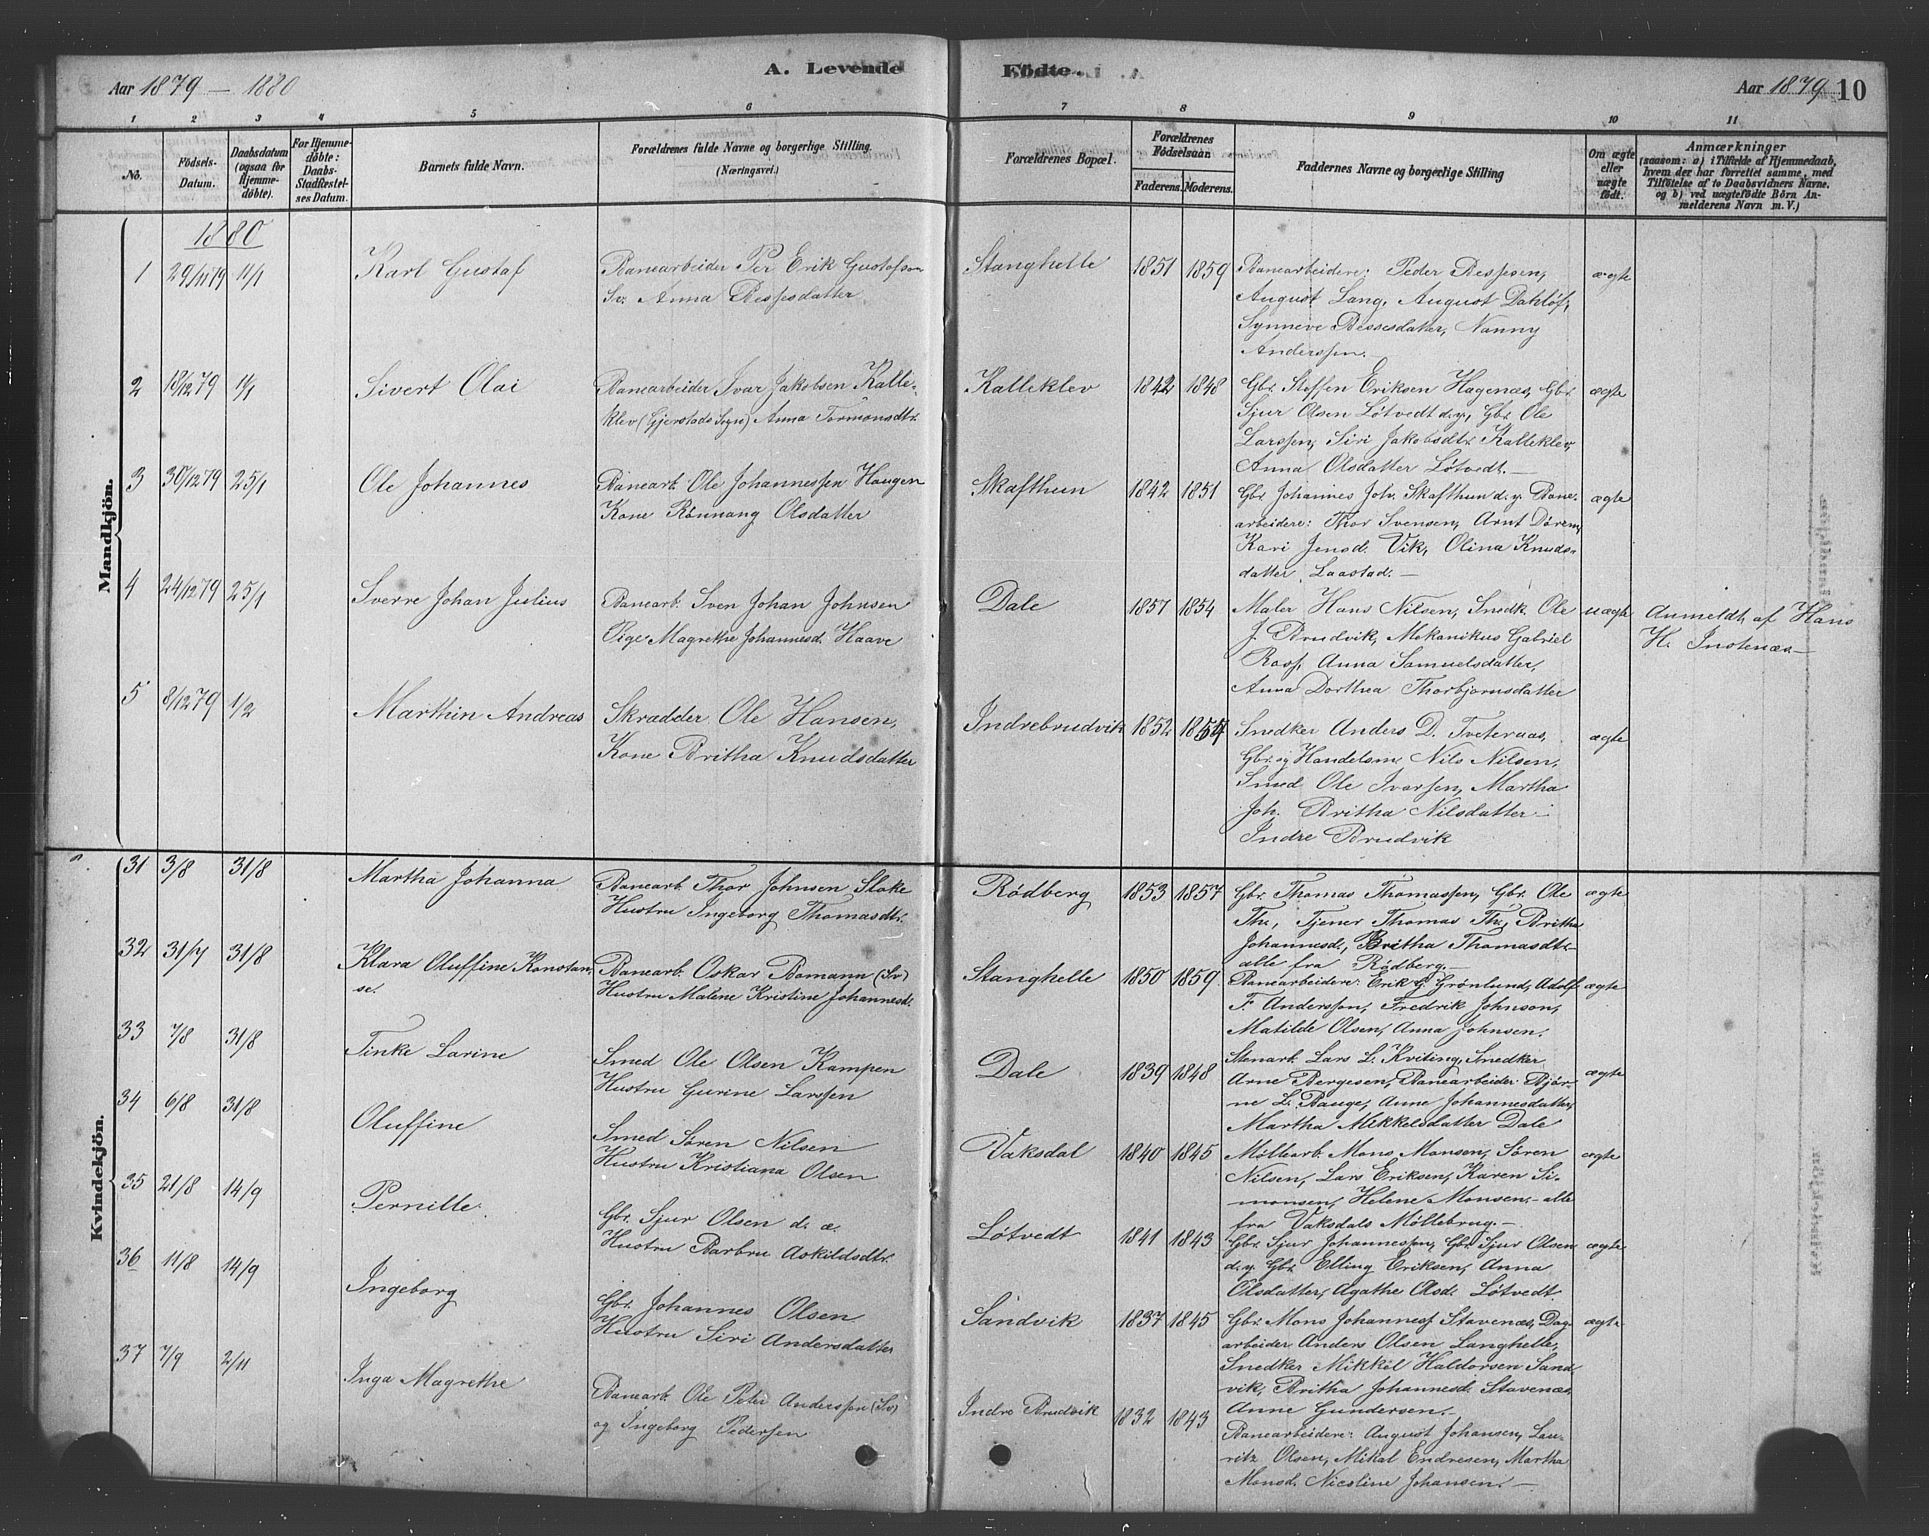 Aar 1879 – 1880
A. Levende
Födte.
Aar 1879
10
1 2 3 4 5 6 7 8 9 10 11
No.
Födsels-
Datum.
Daabsdatum
(ogsaa for
Hjemme-
döbte).
For Hjemme-
döbte:
Daabs-
Stadfæstel-
ses Datum.
Barnets fulde Navn.
Forældrenes fulde Navne og borgerlige Stilling.
(Næringsvei.)
Forældrenes Bopæl.
Forældrenes
Födselsaar
Faderens. Moderens.
Faddernes Navne og borgerlige Stilling
Om ægte
eller
uægte
födt.
Anmærkninger
(saasom: a) i Tilfælde af Hjemmedaab,
hvem der har forrettet samme, med
Tilföielse af to Daabsvidners Navne.
og b) ved uægtefödte Börn An-
melderens Navn m. V.)
Mandkjön.
1880
1 29/11 79 11/1 Karl Gustaf
Banearbeider Per Erik Gustafson
Sv. Anna Bessesdatter
Stanghelle 1851 1859
Banearbeidere: Peder Bessesen,
August Lang, August Dahlöf,
Synneve Bessesdatter, Nanny
Anderssen.
ægte
2 18/12 79 11/1 Sivert Olai
Banearbeider Ivar Jakobsen Kalle-
klev (Gjerstads Sogn) Anna Tormonsdtr.
Kalleklev 1842 1848
Gbr. Steffen Eriksen Hagenæs, Gbr.
Sjur Olsen Løtvedt d.y., Gbr. Ole
Larssen, Siri Jakobsdtr. Kalleklev,
Anna Olsdatter Løtvedt. –
ægte
3 30/12 79 25/1 Ole Johannes
Banearb. Ole Johannessen Haugen
Kone Rönnaug Olsdatter
Skafthun 1842 1851
Gbr. Johannes Joh. Skafthun d.y. Bane-
arbeidere: Thor Svensen, Arnt Døren,
Kari Jensd. Vik, Olina Knuds-
datter Laastad. –
ægte
4 24/12 79 25/1 Sverre Johan Julius
Banearb. Sven Johan Johnsen
Pige Magrethe Johannesd. Haave
Dale 1857 1854
Maler Hans Nilsen, Snedk. Ole
J. Brudvik, Mekanikus Gabriel
Ross, Anna Samuelsdatter,
Anna Dorthea Thorbjørnsdatter
uægte
Anmeldt af Hans
H. Instenæs –
5 8/12 79 1/2 Marthin Andreas
Skrædder Ole Hansen,
Kone Britha Knudsdatter
Indrebrudvik 1852 1854
Snedker Anders D. Tveteraas,
Gbr. og Handelsm. Nils Nilsen,
Smed Ole Ivarsen, Martha
Joh. Britha Nilsdatter
Indre Brudvik
ægte
Kvindekjön.
31 3/8 31/8 Martha Johanna
Banearb. Thor Johnsen Stoke
Hustru Ingeborg Thomasdtr.
Rödberg 1853 1857
Gbr. Thomas Thomassen, Gbr. Ole
Th., Tjener Thomas Th., Britha
Johannesd., Britha Thomasdtr.
alle fra Rödberg. –
ægte
32 31/7 31/8 Klara Oluffine Konstan-
se.
Banearb. Oskar Bomann (Sv)
Hustru Malene Kristine Johannesd.
Stanghelle 1850 1859
Banearbeidere: Erik G. Grönlund, Adolf
F. Anderssen, Fredrik Johnson,
Matilde Olsen, Anna Johnsen.
ægte
33 7/8 31/8 Tinke Larine
Smed Ole Olsen Kampen
Hustru Gurine Larssen
Dale 1839 1848
Stenarb. Lars L. Kviting, Snedker
Arne Bergesen, Banearbeider Bjar-
ne L. Bauge, Anne Johannesdatter,
Martha Mikkelsdatter Dale
ægte
34 6/8 31/8 Oluffine
Smed Sören Nilsen
Hustru Kristiana Olsen
Vaksdal 1840 1845
Møllearb. Mons Monsen, Sören
Nilsen, Lars Eriksen, Karen Si-
monsen, Helene Monsen, – alle
fra Vaksdals Möllebrug. –
ægte
35 21/8 14/9 Pernille.
Gbr. Sjur Olsen d. æ.
Hustru Barbru Askildsdtr.
Løtvedt 1841 1843
Gbr. Sjur Johannessen, Gbr. Sjur Olsen
d.y. Gbr. Elling Eriksen, Anna
Olsdatter, Agathe Olsd. Løtvedt
ægte
36 11/8 14/9 Ingeborg
Gbr. Johannes Olsen
Hustru Siri Andersdatter
Sandvik 1837 1845
Gbr. Mons Johannesf Stavenæs, Dag-
arbeider Anders Olsen Langhelle,
Snedker Mikkel Haldorsen Sand
vik, Britha Johannesd. Stavenæs,
Anne Gundersen. –
ægte
37 7/9 2/11 Inga Magrethe
Banearb. Ole Peter Anderssen (Sv)
og Ingeborg Pedersen
Indre Brudvik 1832 1843
Banearbeidere: August Johansen, Lau-
ritz Olsen, Mikal Endresen, Martha
Monsd. Nicoline Johansen. –